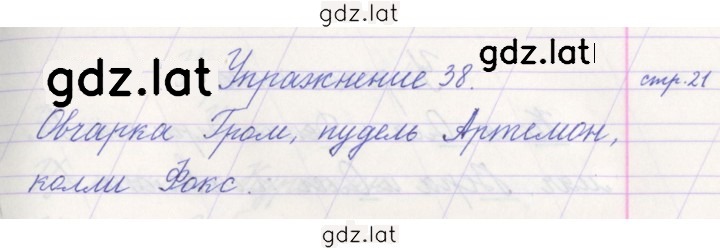 gdz.lat
gdz.lat Упражнение 38. gdz.lat стр. 21
Овчарка Гром, пудель Артемон,
колли Фокс.
gdz.lat